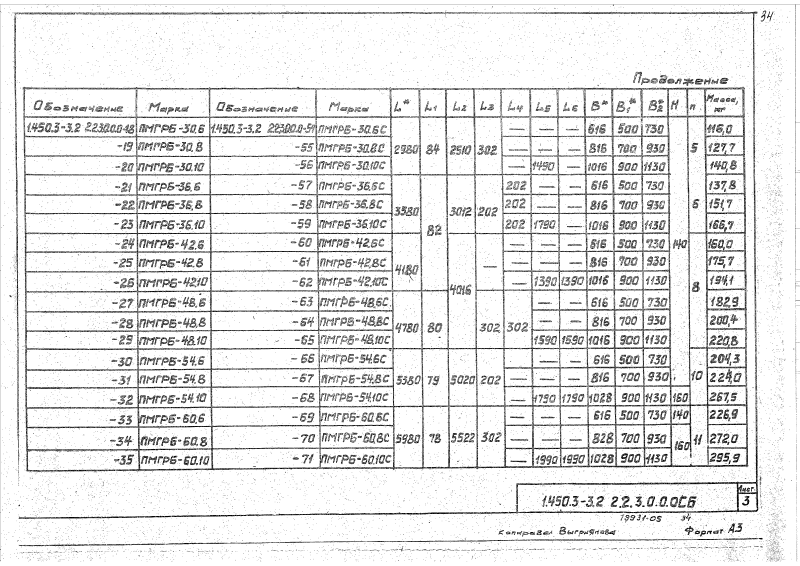 34
Продолжение
Обозначение Марка Обозначение Марка L* L1 L2 L3 L4 L5 L6 B* B1* B2* H n Масса, кг
1.450.3-3.2 2.2.3.0.0.0-18 ПМГРБ-30.6 1.450.3-3.2 2.2.3.0.0.0-54 ПМГРБ-30.6С 2980 84 2510 302 — — — 616 500 730 140 5 116,0
-19 ПМГРБ-30.8 -55 ПМГРБ-30.8С — — — 816 700 930 127,7
-20 ПМГРБ-30.10 -56 ПМГРБ-30.10С — 1490 — 1016 900 1130 140,8
-21 ПМГРБ-36.6 -57 ПМГРБ-36.6С 3580 82 3012 202 202 — — 616 500 730 6 137,8
-22 ПМГРБ-36.8 -58 ПМГРБ-36.8С 202 — — 816 700 930 151,7
-23 ПМГРБ-36.10 -59 ПМГРБ-36.10С 202 1790 — 1016 900 1130 166,7
-24 ПМГРБ-42.6 -60 ПМГРБ-42.6С 4180 4016 — — — — 616 500 730 8 160,0
-25 ПМГРБ-42.8 -61 ПМГРБ-42.8С — — — 816 700 930 175,7
-26 ПМГРБ-42.10 -62 ПМГРБ-42.10С — 1390 1390 1016 900 1130 194,1
-27 ПМГРБ-48.6 -63 ПМГРБ-48.6С 4780 80 302 302 — — 616 500 730 182,9
-28 ПМГРБ-48.8 -64 ПМГРБ-48.8С — — 816 700 930 200,4
-29 ПМГРБ-48.10 -65 ПМГРБ-48.10С 1590 1590 1016 900 1130 220,8
-30 ПМГРБ-54.6 -66 ПМГРБ-54.6С 5380 79 5020 202 — — — 616 500 730 10 204,3
-31 ПМГРБ-54.8 -67 ПМГРБ-54.8С — — — 816 700 930 224,0
-32 ПМГРБ-54.10 -68 ПМГРБ-54.10С — 1790 1790 1028 900 1130 160 267,5
-33 ПМГРБ-60.6 -69 ПМГРБ-60.6С 5980 78 5522 302 — — — 616 500 730 140 11 226,9
-34 ПМГРБ-60.8 -70 ПМГРБ-60.8С — — — 828 700 930 160 272,0
-35 ПМГРБ-60.10 -71 ПМГРБ-60.10С — 1990 1990 1028 900 1130 295,9
1.450.3-3.2 2.2.3.0.0.0СБ
Лист
3
19931-05 34
Копировал
Формат А3